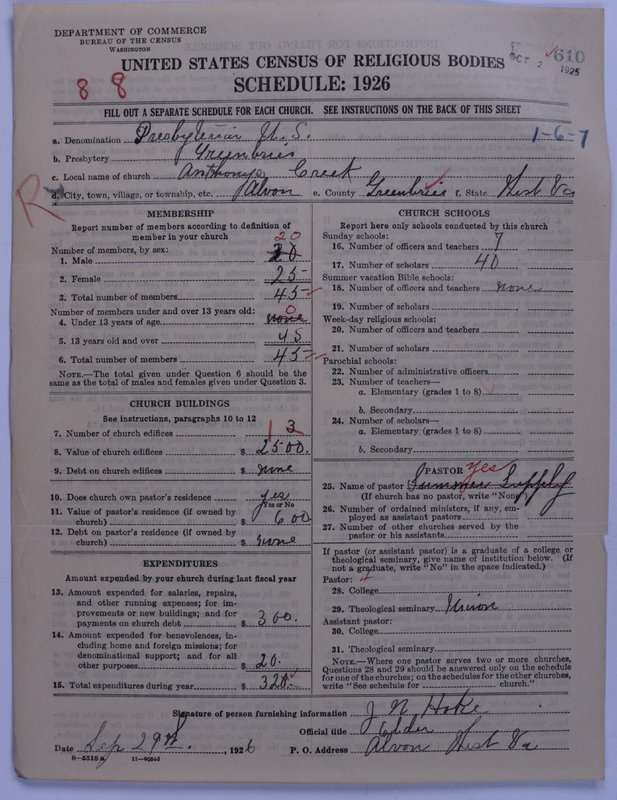 DEPARTMENT OF COMMERCE
BUREAU OF THE CENSUS
WASHINGTON
610
OCT 2 1925
UNITED STATES CENSUS OF RELIGIOUS BODIES
SCHEDULE: 1926
8 8
FILL OUT A SEPARATE SCHEDULE FOR EACH CHURCH. SEE INSTRUCTIONS ON THE BACK OF THIS SHEET
a. Denomination Presbyterian U.S. 1-6-7
b. Presbytery Greenbrier
c. Local name of church Anthonys Creek
R
d. City, town, village, or township, etc. Alvon e. County Greenbrier f. State West Va
MEMBERSHIP
Report number of members according to definition of
member in your church
Number of members, by sex:
1. Male 20
2. Female 25
3. Total number of members 45
Number of members under and over 13 years old:
4. Under 13 years of age none 0
5. 13 years old and over 45
6. Total number of members 45
NOTE.—The total given under Question 6 should be
the same as the total of males and females given under Question 3.
CHURCH BUILDINGS
See instructions, paragraphs 10 to 12
7. Number of church edifices 1 3
8. Value of church edifices $ 2500.
9. Debt on church edifices $ none
10. Does church own pastor's residence yes
Yes or No
11. Value of pastor's residence (if owned by
church) $ 600
12. Debt on pastor's residence (if owned by
church) $ none
EXPENDITURES
Amount expended by your church during last fiscal year
13. Amount expended for salaries, repairs,
and other running expenses; for im-
provements or new buildings; and for
payments on church debt $ 300.
14. Amount expended for benevolences, in-
cluding home and foreign missions; for
denominational support; and for all
other purposes $ 20.
15. Total expenditures during year $ 320.
CHURCH SCHOOLS
Report here only schools conducted by this church
Sunday schools:
16. Number of officers and teachers 7
17. Number of scholars 40
Summer vacation Bible schools:
18. Number of officers and teachers none
19. Number of scholars
Week-day religious schools:
20. Number of officers and teachers
21. Number of scholars
Parochial schools:
22. Number of administrative officers
23. Number of teachers—
a. Elementary (grades 1 to 8)
b. Secondary
24. Number of scholars—
a. Elementary (grades 1 to 8)
b. Secondary
PASTOR yes
25. Name of pastor Summer Supply
(If church has no pastor, write "None")
26. Number of ordained ministers, if any, em-
ployed as assistant pastors
27. Number of other churches served by the
pastor or his assistants
If pastor (or assistant pastor) is a graduate of a college or
theological seminary, give name of institution below. (If
not a graduate, write "No" in the space indicated.)
Pastor:
28. College
29. Theological seminary Union
Assistant pastor:
30. College
31. Theological seminary
NOTE.—Where one pastor serves two or more churches,
Questions 28 and 29 should be answered only on the schedule
for one of the churches; on the schedules for the other churches,
write "See schedule for church."
Signature of person furnishing information J N Hoke
Official title Elder
Date Sep 29th, 1926 P. O. Address Alvon West Va
8-5518a 11-90544